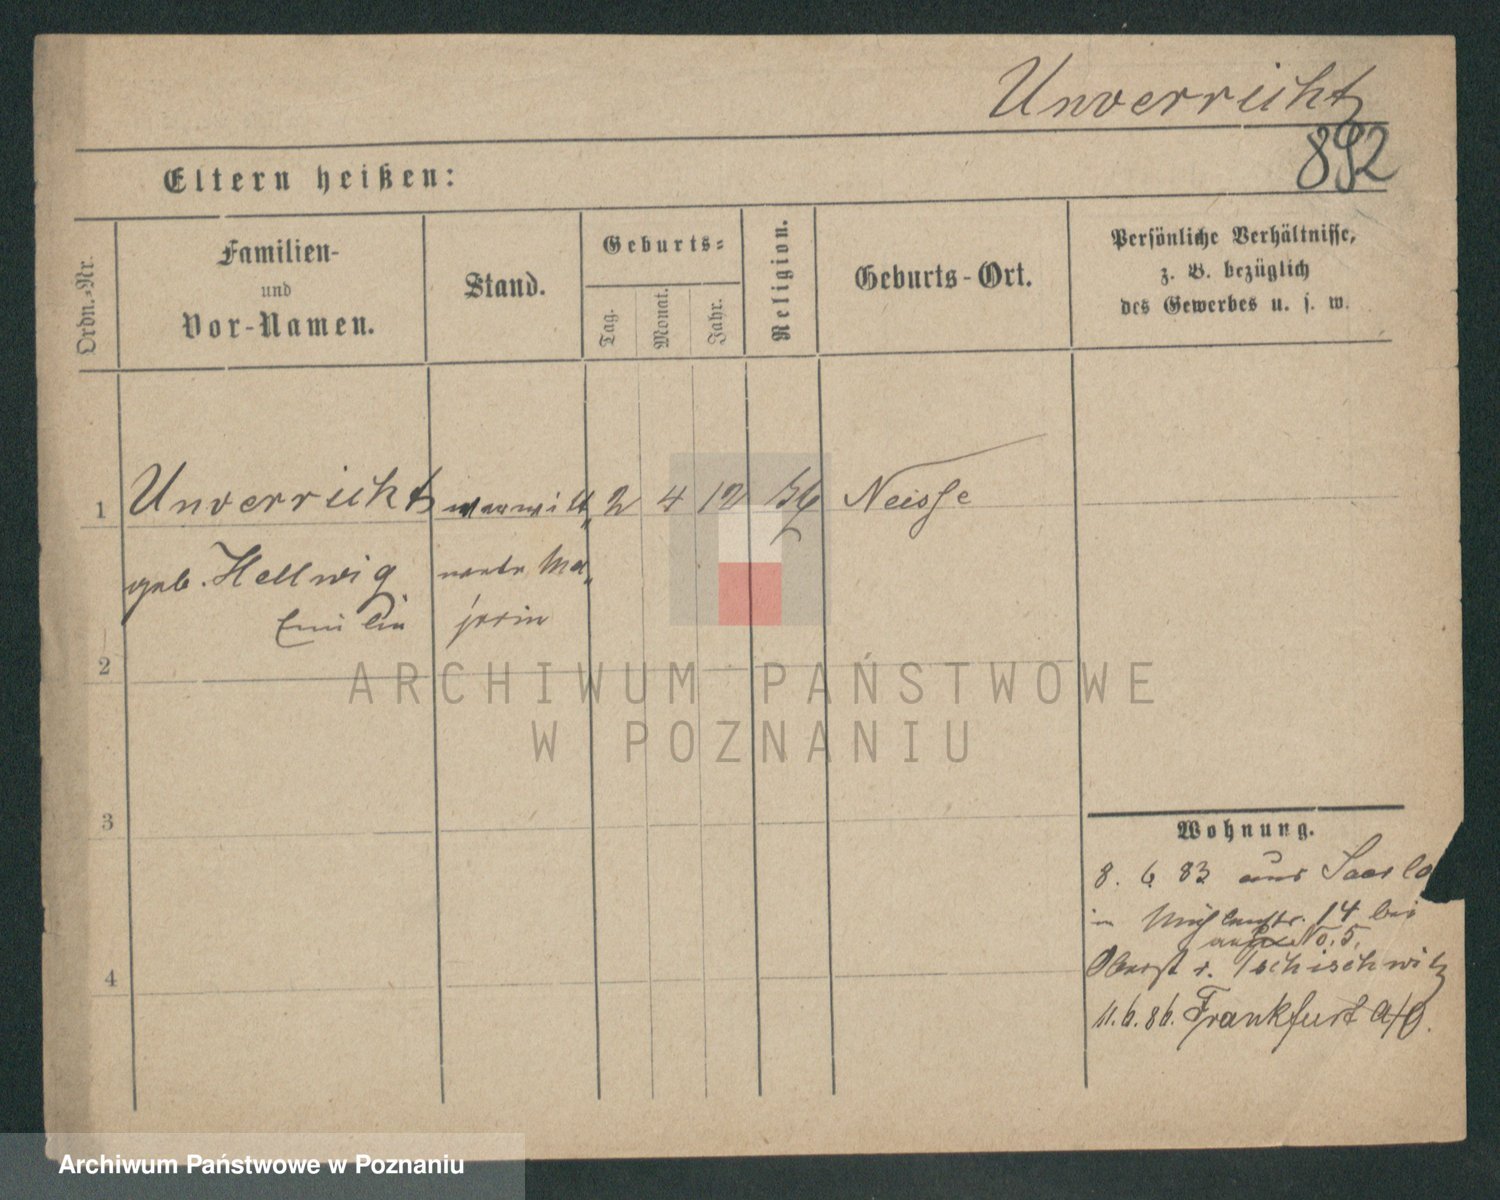 Unverricht
892
Eltern heißen:
Ordn.-Nr.
Familien- und Vor-Namen.
Stand.
Geburts-
Tag.
Monat.
Jahr.
Religion.
Geburts-Ort.
Persönliche Verhältnisse,
z. B. bezüglich
des Gewerbes u. s. w.
1 Unverricht verwitt, 2 4 12 Neisse
geb. Hellwig Ma,
Emilie jorin
2
3
4
Wohnung.
8. 6 83 aus Saarlo
in 14 bei
No. 5.
Oberst v. Tschischwitz
11.6.86. Frankfurt a/O.
ARCHIWUM PAŃSTWOWE
W POZNANIU
Archiwum Państwowe w Poznaniu